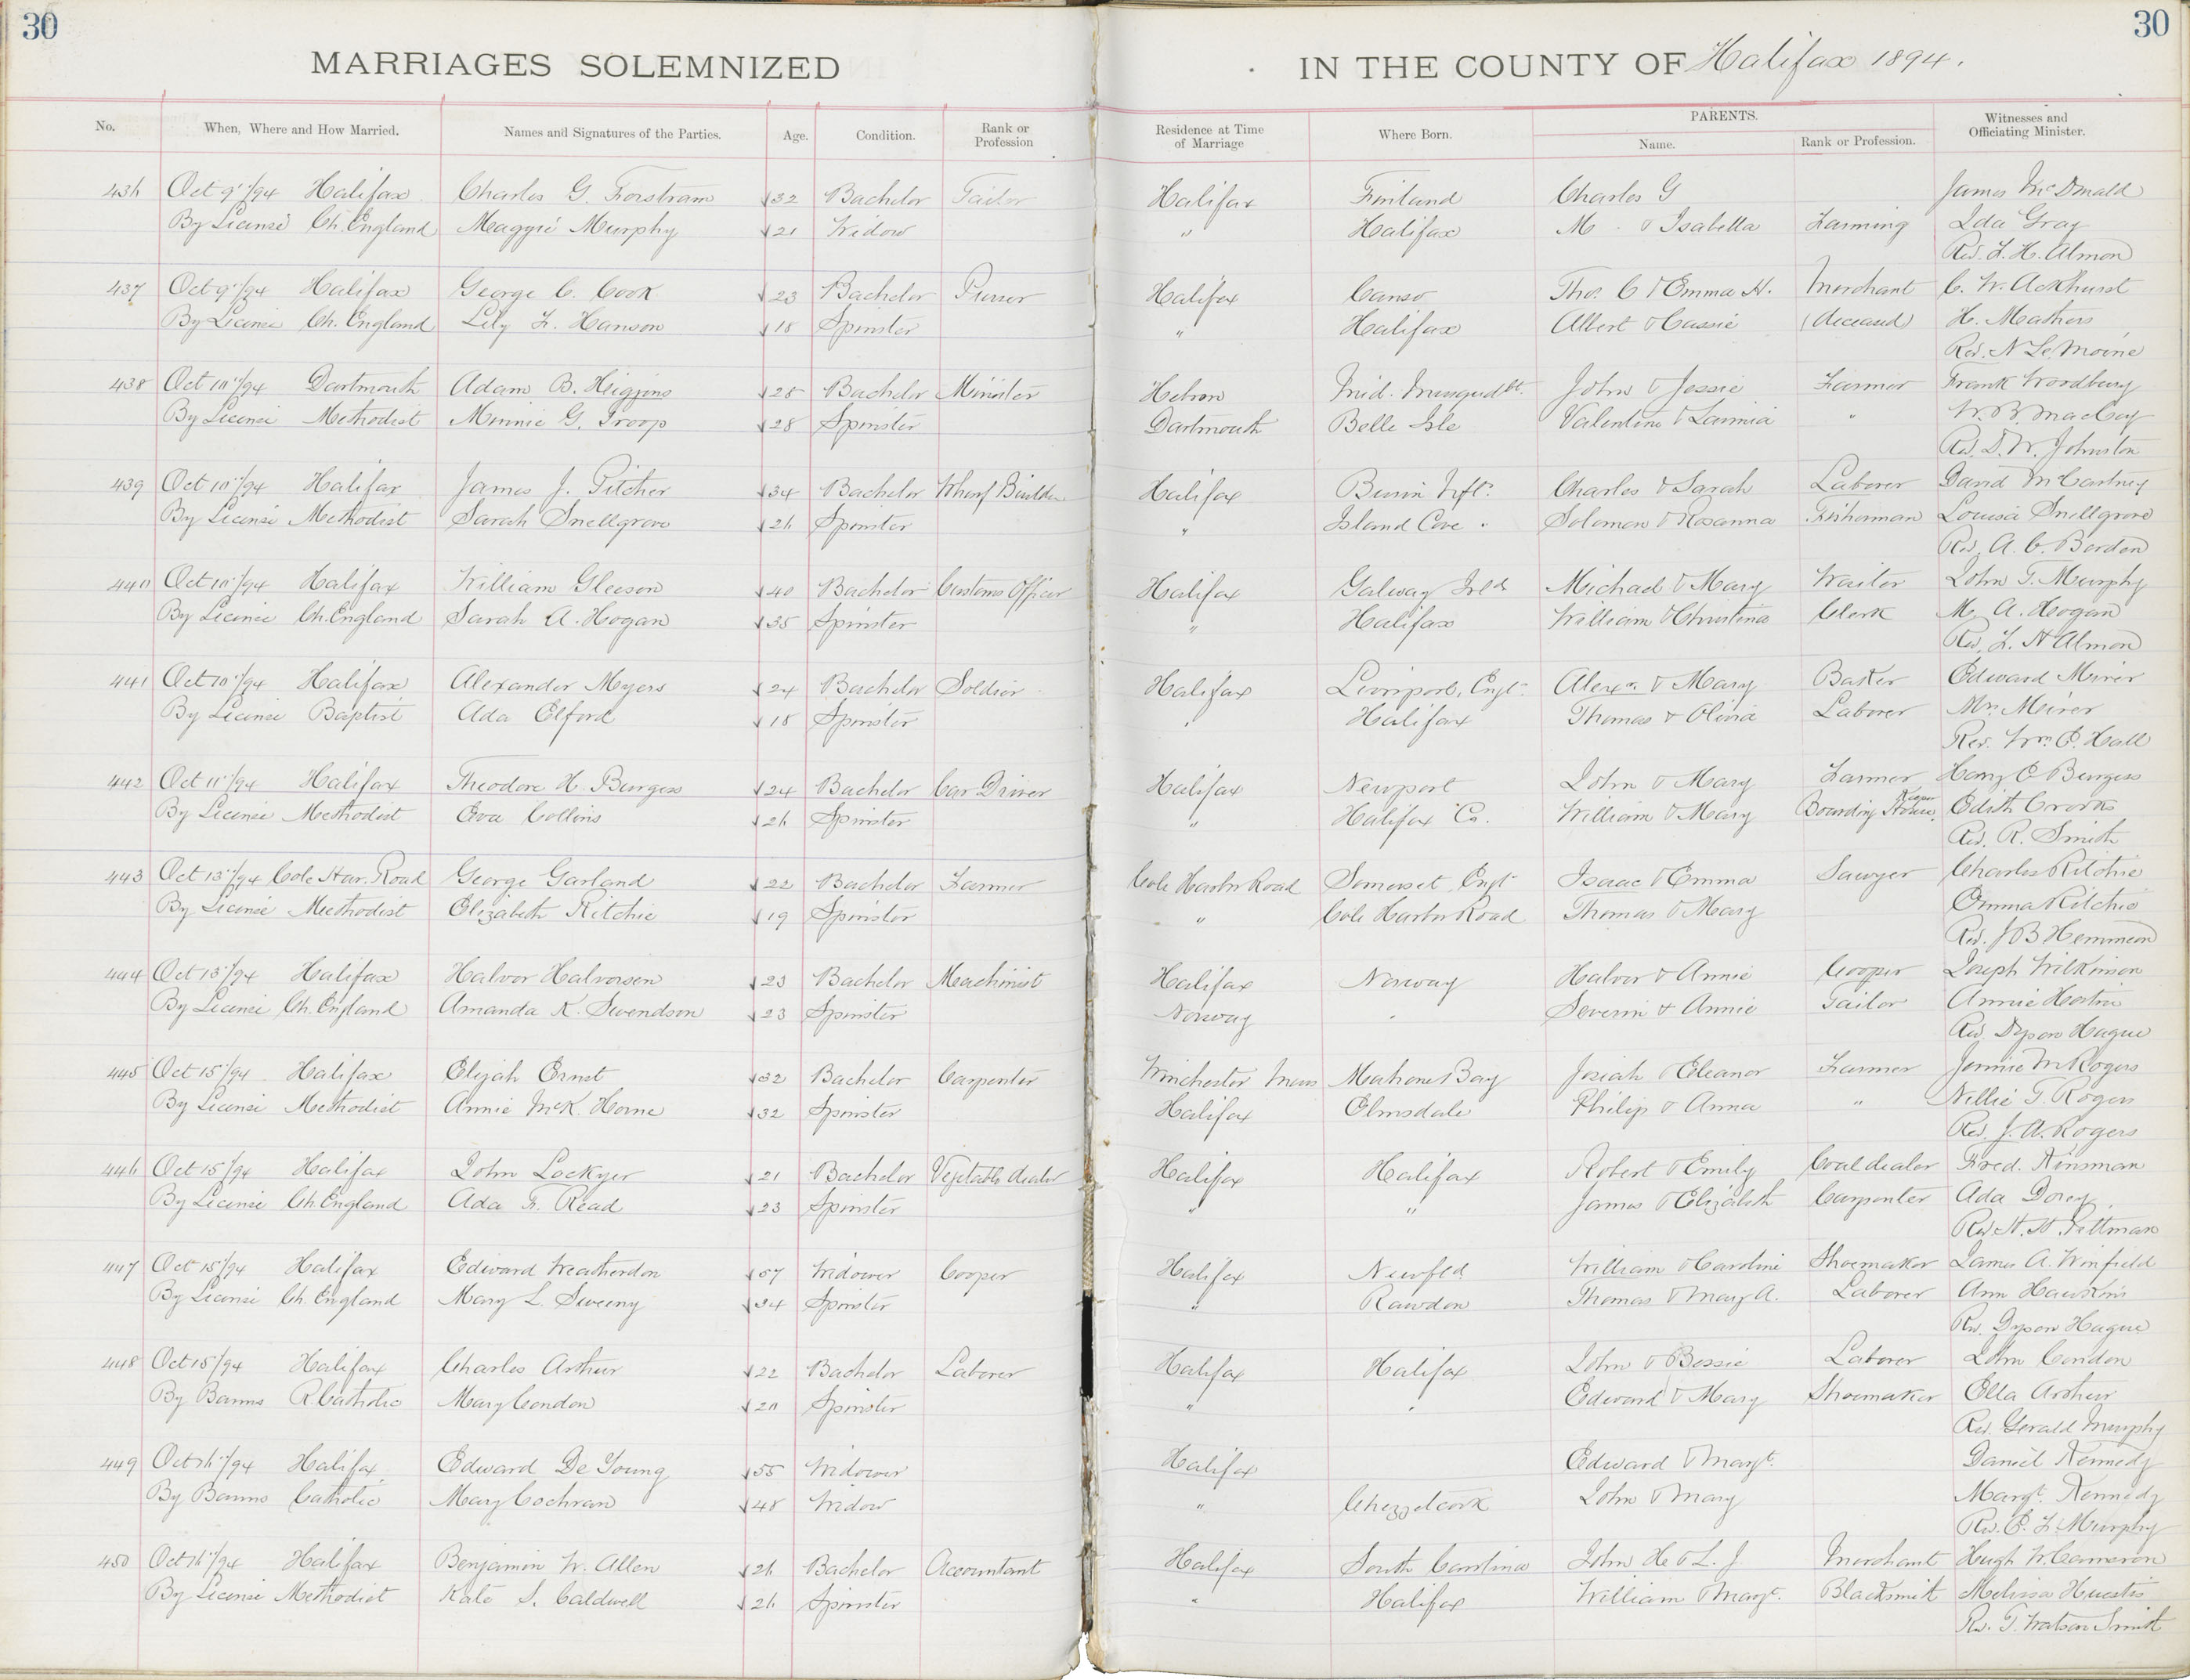 30
30
MARRIAGES SOLEMNIZED
IN THE COUNTY OF Halifax 1894.
No. When, Where and How Married. Names and Signatures of the Parties. Age. Condition. Rank or Profession Residence at Time of Marriage Where Born. PARENTS. Name. Rank or Profession. Witnesses and Officiating Minister.
436 Oct 9"/94 Halifax Charles G. Forstram 32 Bachelor Tailor Halifax Finland Charles G James McDonald
By License Ch. England Maggie Murphy 21 Widow " Halifax M & Isabella Farming Ida Gray
Rev. F. H. Almon
437 Oct 9"/94 Halifax George C. Cook 23 Bachelor Purser Halifax Canso Tho. C & Emma H. Merchant C. W. Ackhurst
By License Ch. England Lily F. Hanson 18 Spinster " Halifax Albert & Cassie (deceased) H. Mathers
Rev. N Le Moine
438 Oct 10"/94 Dartmouth Adam B. Higgins 28 Bachelor Minister Hebron Mid. Musquodbt. John & Jessie Farmer Frank Woodbury
By License Methodist Minnie G. Troop 28 Spinster Dartmouth Belle Isle Valentine & " W. B. MacCoy
Rev. D. W. Johnston
439 Oct 10"/94 Halifax James J. Pitcher 34 Bachelor Wharf Builder Halifax Burin Nfld. Charles & Sarah Laborer David McCartney
By License Methodist Sarah Snellgrove 26 Spinster " Island Cove " Solomon & Rosanna Fisherman Louisa Snellgrove
Rev. A. C. Borden
440 Oct 10"/94 Halifax William Gleeson 40 Bachelor Customs Officer Halifax Galway Irld Michael & Mary Waiter John T. Murphy
By License Ch. England Sarah A. Hogan 35 Spinster " Halifax William & Christina Clerk M. A. Hogan
Rev. F. H Almon
441 Oct 10"/94 Halifax Alexander Myers 24 Bachelor Soldier Halifax Liverpool, Engd. Alexr. & Mary Baker Edward Meirer
By License Baptist Ada Elford 18 Spinster " Halifax Thomas & Olivia Laborer Mrs Meirer
Rev. Wm E. Hall
442 Oct 11"/94 Halifax Theodore H. Burgess 24 Bachelor Car Driver Halifax Newport John & Mary Farmer Harry C Burgess
By License Methodist Eva Collins 26 Spinster " Halifax Co. William & Mary Boarding House Keeper Edith Crooks
Rev. R. Smith
443 Oct 13"/94 Cole Har. Road George Garland 22 Bachelor Farmer Cole Harbor Road Somerset, Engd Isaac & Emma Sawyer Charles Ritchie
By License Methodist Elizabeth Ritchie 19 Spinster " Cole Harbor Road Thomas & Mary Emma Ritchie
Rev. J B Hemmeon
444 Oct 13"/94 Halifax Halvor Halvorsen 23 Bachelor Machinist Halifax Norway Halvor & Annie Cooper Joseph Wilkinson
By License Ch. England Amanda K. Swendson 23 Spinster Norway " Severin & Annie Tailor Annie
Rev. Dyson Hague
445 Oct 15"/94 Halifax Elijah Ernst 32 Bachelor Carpenter Winchester Mass Mahone Bay Josiah & Eleanor Farmer Jennie M Rogers
By License Methodist Annie McK. Horne 32 Spinster Halifax Elmsdale Philip & Anna " Nellie T. Rogers
Rev. J. A. Rogers
446 Oct 15"/94 Halifax John Lockyer 21 Bachelor Vegetable dealer Halifax Halifax Robert & Emily Coal dealer Fred. Kinsman
By License Ch. England Ada F. Read 23 Spinster " " James & Elizabeth Carpenter Ada Dorey
Rev H. H. Pittman
447 Oct 15"/94 Halifax Edward Weatherdon 57 Widower Cooper Halifax Newfld William & Caroline Shoemaker James A. Winfield
By License Ch. England Mary L. Sweeny 34 Spinster " Rawdon Thomas & Mary A. Laborer Ann Hawkins
Rev. Dyson Hague
448 Oct 15/94 Halifax Charles Arthur 22 Bachelor Laborer Halifax Halifax John & Bessie Laborer John Condon
By Banns R. Catholic Mary Condon 20 Spinster " " Edward & Mary Shoemaker Ella Arthur
Rev. Gerald Murphy
449 Oct 16"/94 Halifax Edward De Young 55 Widower Halifax Edward & Margt. Daniel Kennedy
By Banns Catholic Mary Cochran 48 Widow " Chezzetcook John & Mary Margt. Kennedy
Rev. E. F. Murphy
450 Oct 16"/94 Halifax Benjamin W. Allen 26 Bachelor Accountant Halifax South Carolina John H. & L. J. Merchant Hugh W. Cameron
By License Methodist Kate S. Caldwell 26 Spinster " Halifax William & Margt. Blacksmith Melissa Huestis
Rev. T. Watson Smith